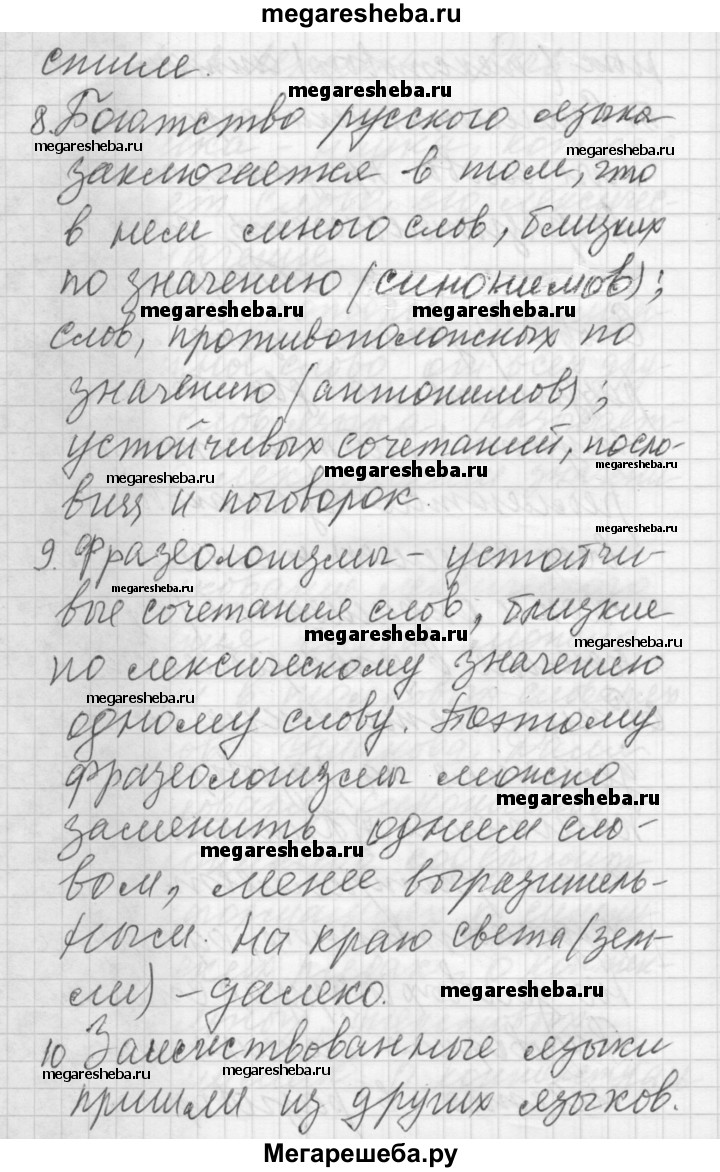 megaresheba.ru
стиле.
megaresheba.ru
8. Богатство русского языка
megaresheba.ru megaresheba.ru
заключается в том, что
в нем много слов, близких
по значению (синонимов);
megaresheba.ru megaresheba.ru
слов, противоположных по
значению (антонимов);
устойчивых сочетаний, посло-
megaresheba.ru megaresheba.ru megaresheba.ru
виц и поговорок.
megaresheba.ru
9. Фразеологизмы – устойчи-
megaresheba.ru
вые сочетания слов, близкие
megaresheba.ru megaresheba.ru
по лексическому значению
megaresheba.ru
одному слову. Поэтому
фразеологизмы можно
megaresheba.ru
заменить одним сло-
megaresheba.ru
вом, менее выразитель-
ным. На краю света (зем-
ли) – далеко.
megaresheba.ru
10 Заимствованные языки
megaresheba.ru megaresheba.ru
пришли из других языков.
Мегарешеба.ру